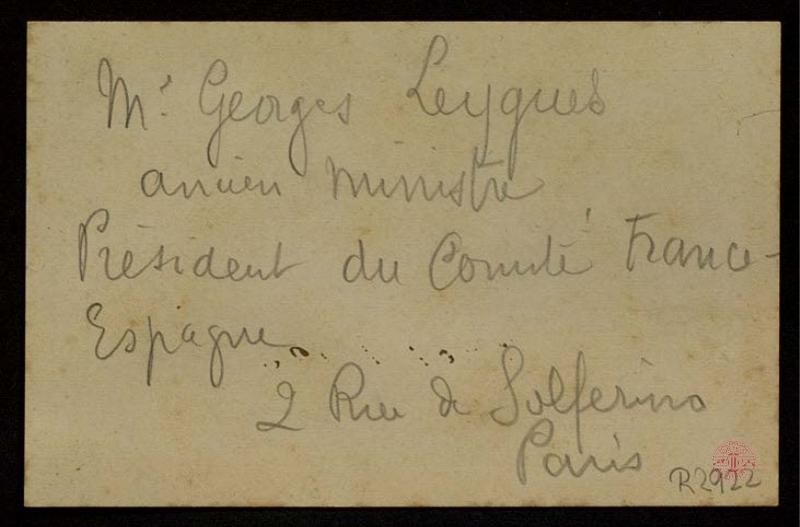 Mr. Georges Leygues
ancien Ministre
Président du Comité France-
Espagne
2 Rue de Solferino
Paris
R2922